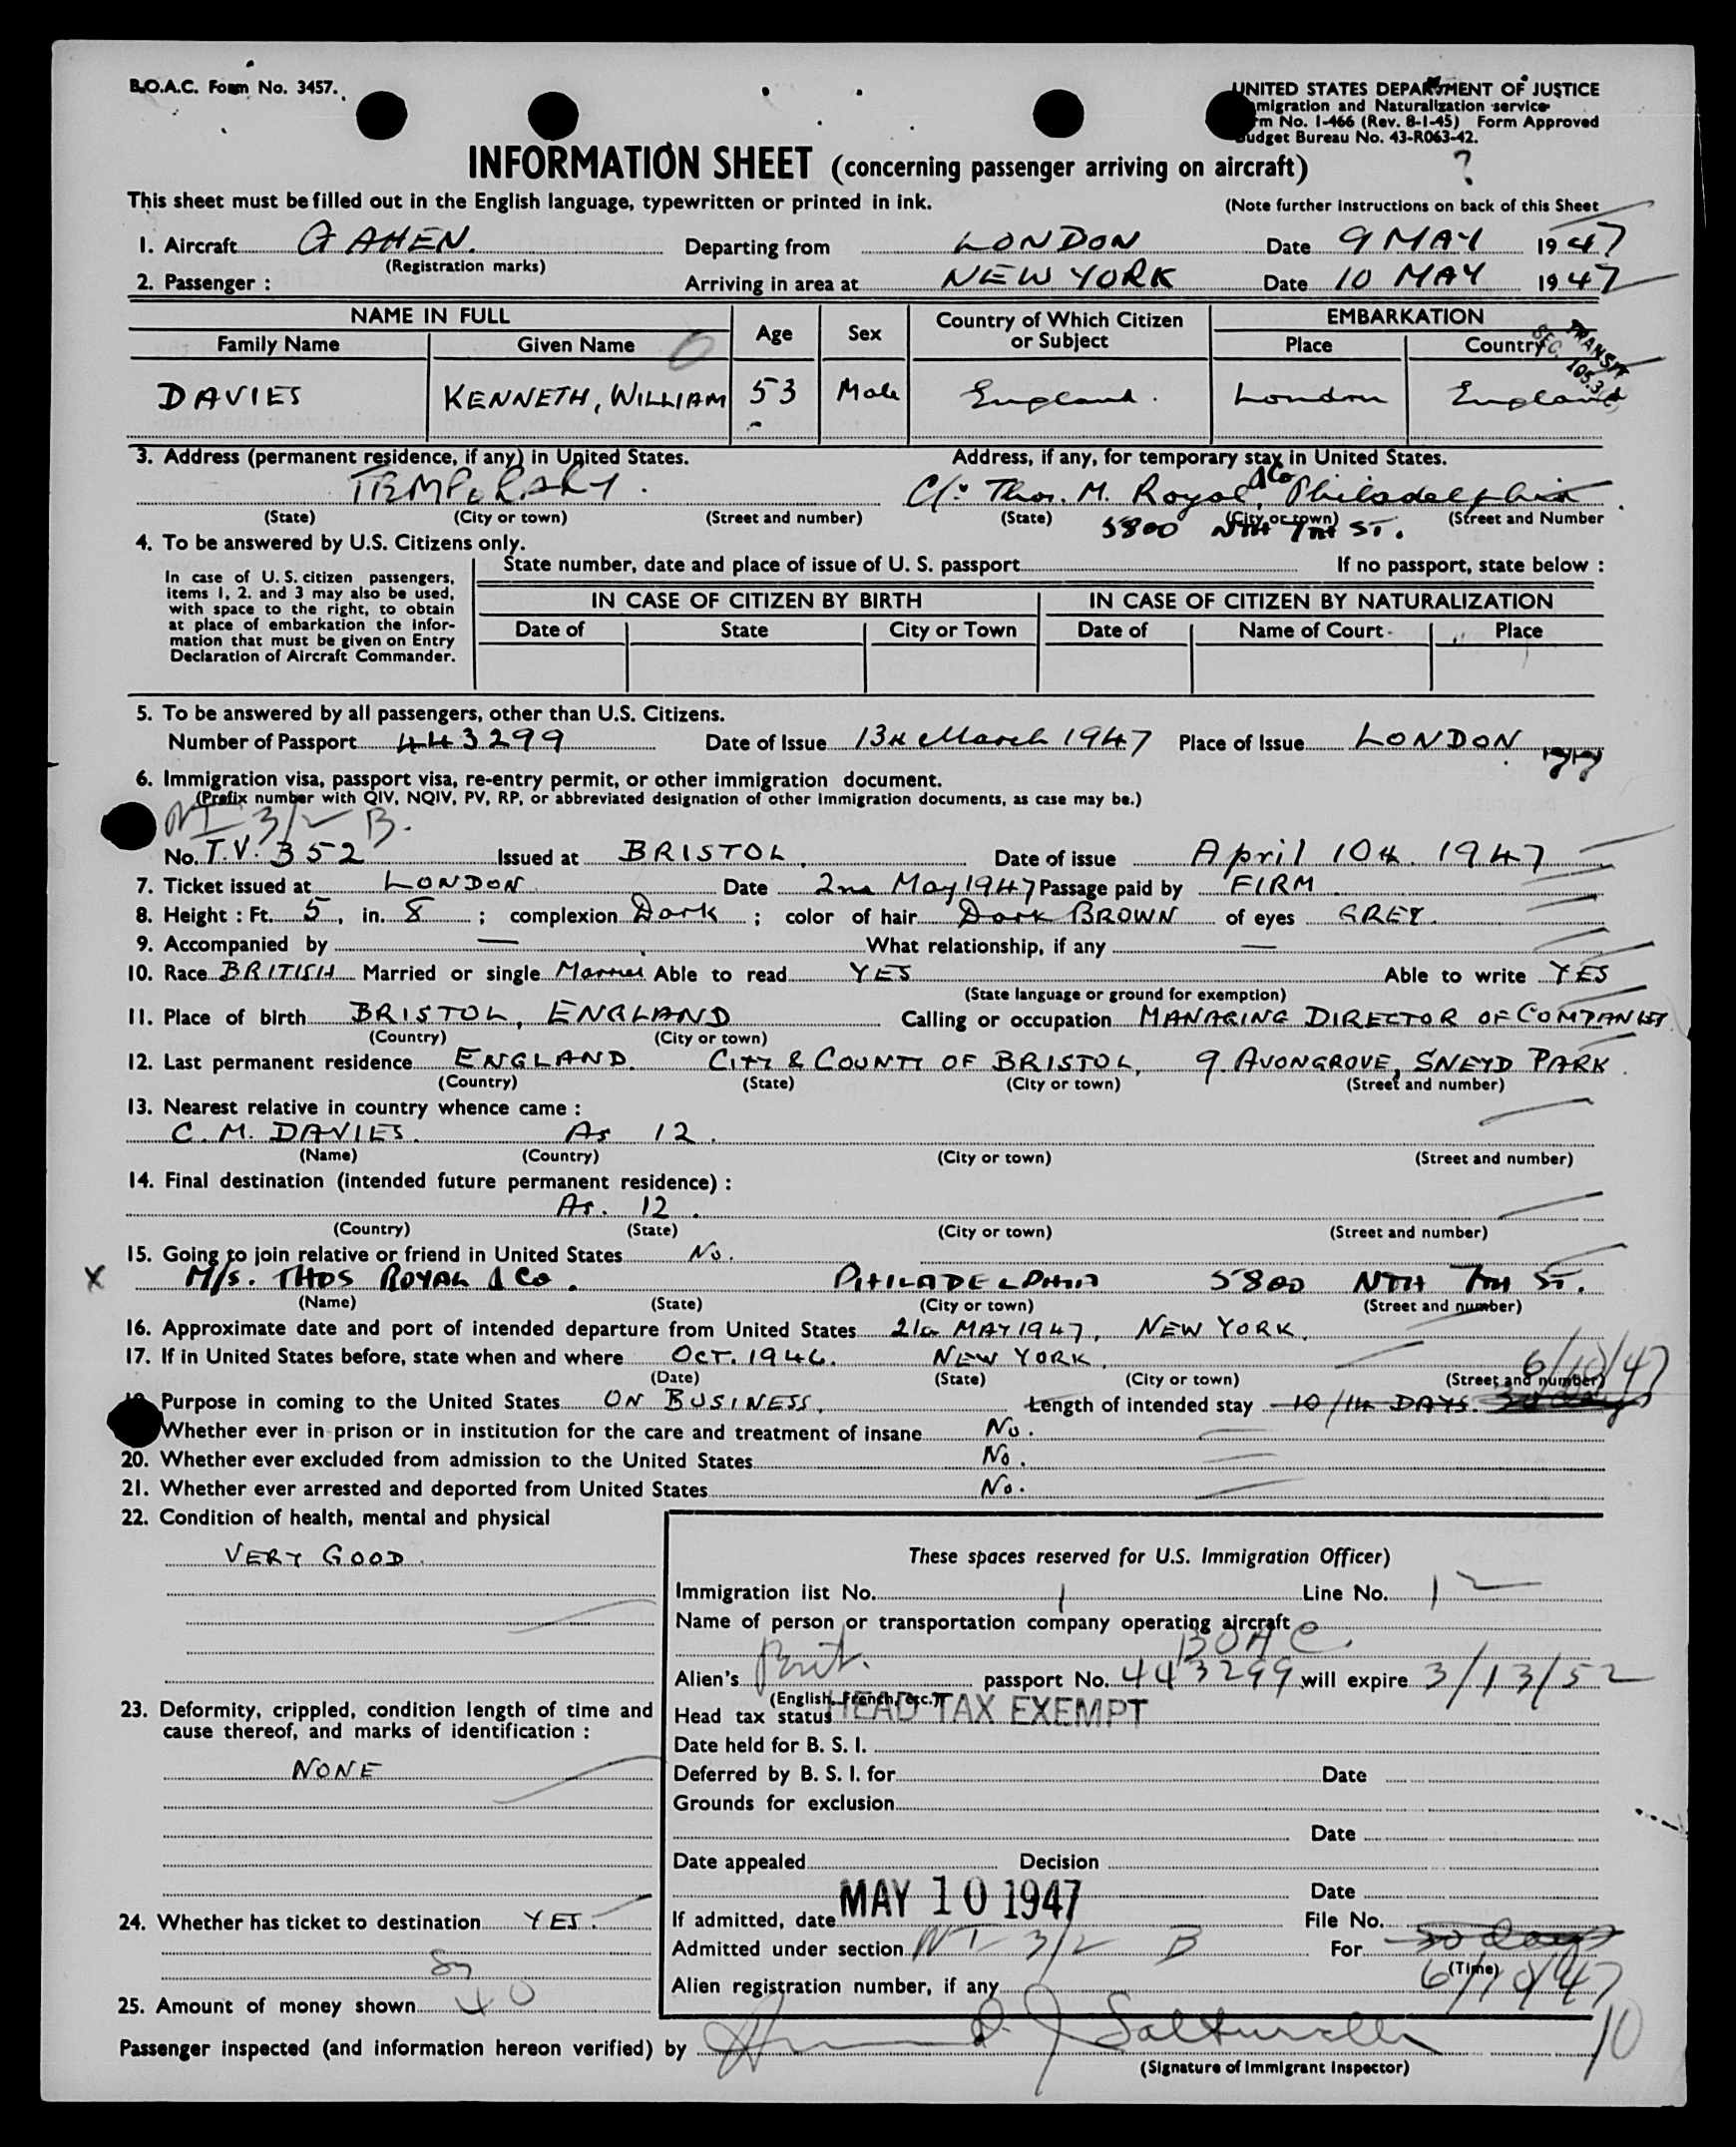 B.O.A.C. Form No. 3457.
UNITED STATES DEPARTMENT OF JUSTICE
migration and Naturalization service
rm No. I-466 (Rev. 8-1-45) Form Approved
udget Bureau No. 43-R063-42.
?
INFORMATION SHEET (concerning passenger arriving on aircraft)
This sheet must be filled out in the English language, typewritten or printed in ink.
(Note further instructions on back of this Sheet
1. Aircraft G AHEN. Departing from LONDON Date 9 MAY 1947
(Registration marks)
2. Passenger : Arriving in area at NEW YORK Date 10 MAY 1947
NAME IN FULL Age Sex Country of Which Citizen or Subject EMBARKATION
Family Name Given Name Place Country
TRANSIT
SEC. 105.3
DAVIES KENNETH, WILLIAM 53 Male England. London England
3. Address (permanent residence, if any) in United States. Address, if any, for temporary stay in United States.
TEMPORARY. C/o Thos. M. Royal &Co, Philadelphia
(State) (City or town) (Street and number) (State) (City or town) (Street and Number
5800 NTH 7TH ST.
4. To be answered by U.S. Citizens only.
State number, date and place of issue of U. S. passport If no passport, state below :
In case of U. S. citizen passengers,
items 1, 2. and 3 may also be used,
with space to the right, to obtain
at place of embarkation the infor-
mation that must be given on Entry
Declaration of Aircraft Commander.
IN CASE OF CITIZEN BY BIRTH IN CASE OF CITIZEN BY NATURALIZATION
Date of State City or Town Date of Name of Court Place
5. To be answered by all passengers, other than U.S. Citizens.
Number of Passport 443299 Date of Issue 13th March 1947 Place of Issue LONDON
6. Immigration visa, passport visa, re-entry permit, or other immigration document.
(Prefix number with QIV, NQIV, PV, RP, or abbreviated designation of other immigration documents, as case may be.)
NI 3/2 B.
No. T.V. 352 Issued at BRISTOL. Date of issue April 10th. 1947
7. Ticket issued at LONDON Date 2nd May 1947 Passage paid by FIRM
8. Height : Ft. 5, in. 8 ; complexion Dark ; color of hair Dark BROWN of eyes GREY.
9. Accompanied by — What relationship, if any —
10. Race BRITISH Married or single Married Able to read YES Able to write YES
(State language or ground for exemption)
11. Place of birth BRISTOL, ENGLAND Calling or occupation MANAGING DIRECTOR OF COMPANIES
(Country) (City or town)
12. Last permanent residence ENGLAND. CITY & COUNTY OF BRISTOL, 9. AVONGROVE, SNEYD PARK.
(Country) (State) (City or town) (Street and number)
13. Nearest relative in country whence came :
C. M. DAVIES. As 12.
(Name) (Country) (City or town) (Street and number)
14. Final destination (intended future permanent residence) :
As. 12.
(Country) (State) (City or town) (Street and number)
15. Going to join relative or friend in United States No.
X M/S. THOS ROYAL & Co. PHILADELPHIA 5800 NTH 7TH ST.
(Name) (State) (City or town) (Street and number)
16. Approximate date and port of intended departure from United States 21st MAY 1947, NEW YORK.
17. If in United States before, state when and where OCT. 1946. NEW YORK.
(Date) (State) (City or town) (Street and number)
6/10/47
Purpose in coming to the United States ON BUSINESS. Length of intended stay 10/14 DAYS. 30 days
Whether ever in prison or in institution for the care and treatment of insane No.
20. Whether ever excluded from admission to the United States No.
21. Whether ever arrested and deported from United States No.
22. Condition of health, mental and physical
VERY GOOD.
These spaces reserved for U.S. Immigration Officer)
Immigration list No. 1 Line No. 12
Name of person or transportation company operating aircraft
BOAC.
Alien's Brit. passport No. 443299 will expire 3/13/52
(English, French, etc.)
Head tax status HEAD TAX EXEMPT
Date held for B. S. I.
Deferred by B. S. I. for Date
Grounds for exclusion
Date
Date appealed Decision
Date
If admitted, date MAY 10 1947 File No.
Admitted under section NI 3/2 B For 30 days
(Time)
6/10/47
Alien registration number, if any
23. Deformity, crippled, condition length of time and
cause thereof, and marks of identification :
NONE
24. Whether has ticket to destination YES.
25. Amount of money shown 40
10
Passenger inspected (and information hereon verified) by
(Signature of Immigrant Inspector)